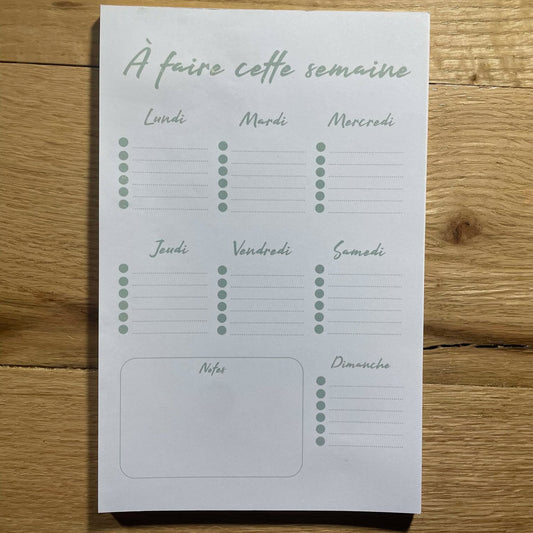 À faire cette semaine
Lundi
Mardi
Mercredi
Jeudi
Vendredi
Samedi
Notes
Dimanche